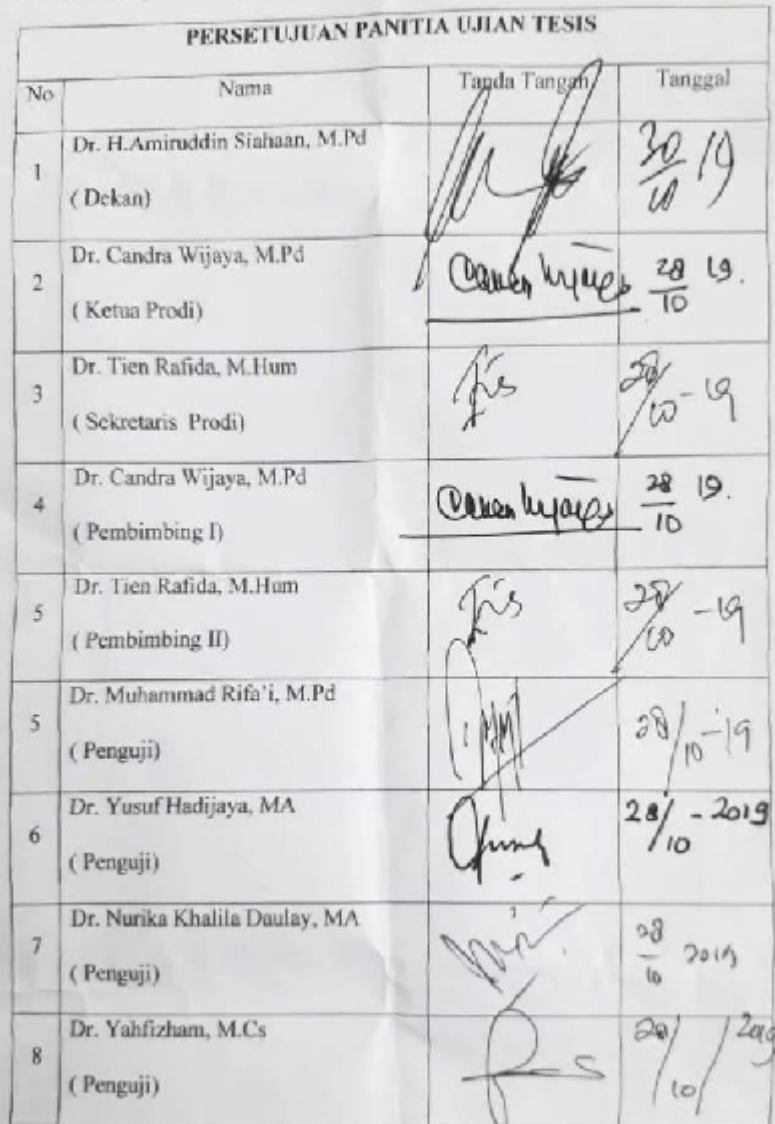 PERSETUJUAN PANITIA UJIAN TESIS
No Nama Tanda Tangan Tanggal
1 Dr. H.Amiruddin Siahaan, M.Pd
( Dekan)
30/10 19
2 Dr. Candra Wijaya, M.Pd
( Ketua Prodi)
28/10 19.
3 Dr. Tien Rafida, M.Hum
( Sekretaris Prodi)
28/10-19
4 Dr. Candra Wijaya, M.Pd
( Pembimbing I)
28/10 19.
5 Dr. Tien Rafida, M.Hum
( Pembimbing II)
28/10 -19
5 Dr. Muhammad Rifa'i, M.Pd
( Penguji)
28/10-19
6 Dr. Yusuf Hadijaya, MA
( Penguji)
28/10 - 2019
7 Dr. Nurika Khalila Daulay, MA
( Penguji)
28/10 2019
8 Dr. Yahfizham, M.Cs
( Penguji)
/10/2019